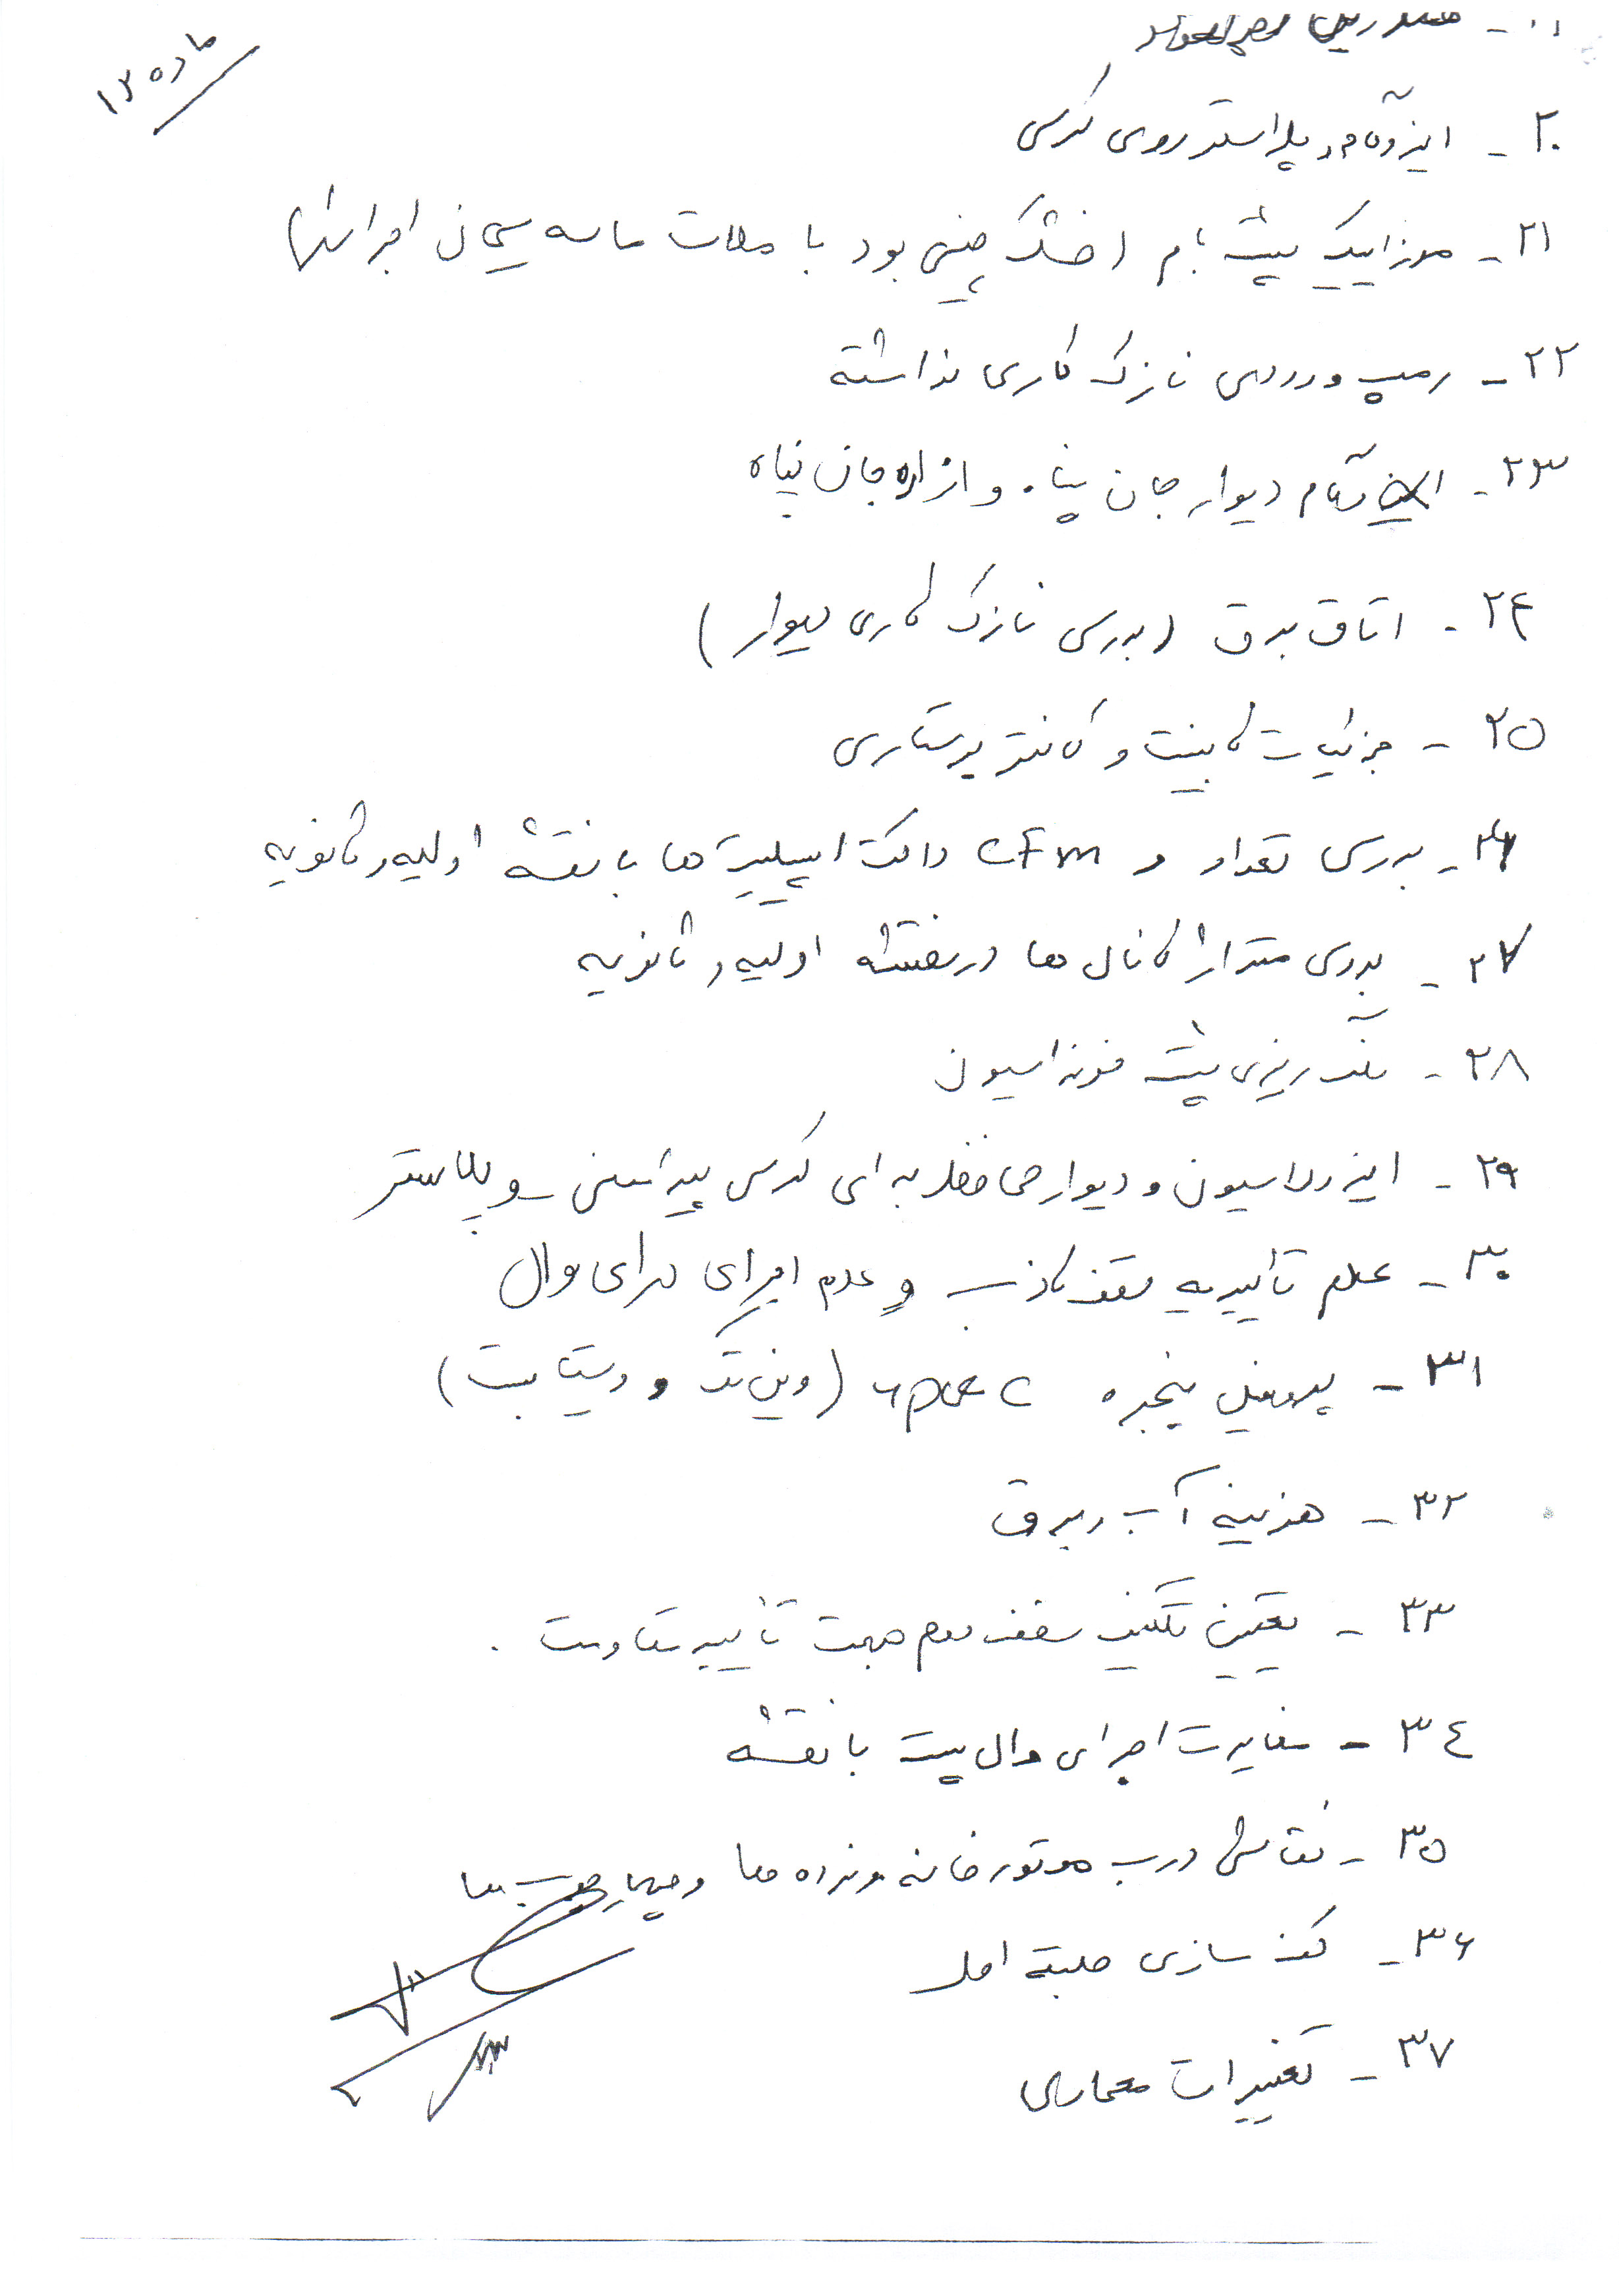 ماده ۱۳
۲۰ - ایزوگام و پلاستر روی کرسی
۲۱ - موزاییک پشت بام (خشکه چینی بود با ملات ماسه سیمان اجرا شد)
۲۲ - رمپ ورودی نازک کاری نداشته
۲۳ - ایزوگام دیوار جان پناه و ازاره جان پناه
۲٤ - اتاق برق (بررسی نازک کاری دیوار)
۲۵ - جزئیات کابینت و کانتر پرستاری
۲۶ - بررسی تعداد و CFM داکت اسپلیت ها با نقشه اولیه و ثانویه
۲۷ - بررسی متراژ کانال ها در نقشه اولیه و ثانویه
۲۸ - بتن ریزی پشت فونداسیون
۲۹ - ایزولاسیون و دیوار محافظ برای کرسی پیرامونی و پلاستر
۳۰ - عدم تأییدیه سقف کاذب و عدم اجرای درای وال
۳۱ - پروفیل پنجره upvc (وین تک و ویستا بست)
۳۲ - هزینه آب و برق
۳۳ - تعیین تکلیف سقف دوم جهت تأیید مقاومت .
۳٤ - مغایرت اجرای وال پست با نقشه
۳۵ - نقاشی درب موتورخانه و نرده ها و چهارچوب ها
۳۶ - کف سازی طبقه اول
۳۷ - تغییرات معماری